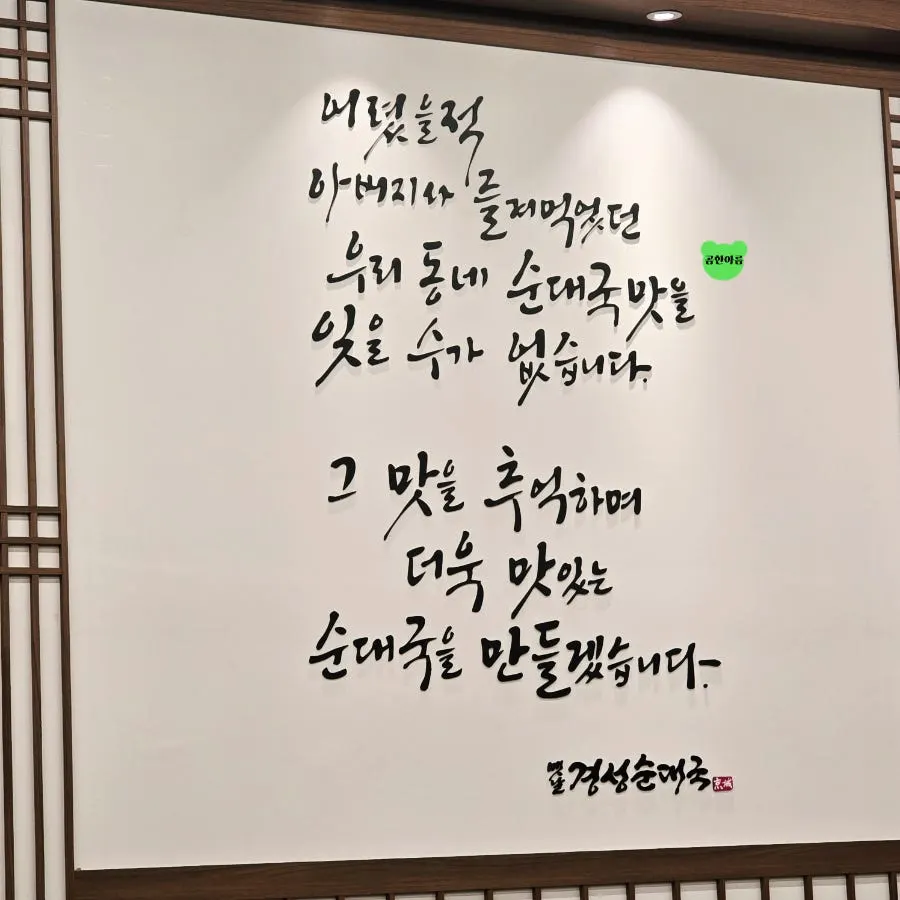 어렸을적
아버지와 즐겨먹었던
우리 동네 순대국맛을
곰한아름
잊을 수가 없습니다.
그 맛을 추억하며
더욱 맛있는
순대국을 만들겠습니다.
명물 경성순대국 京城